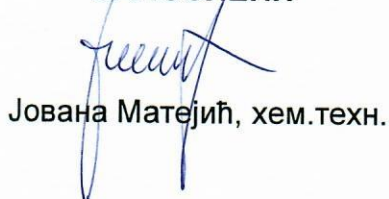 Јована Матејић, хем.техн.